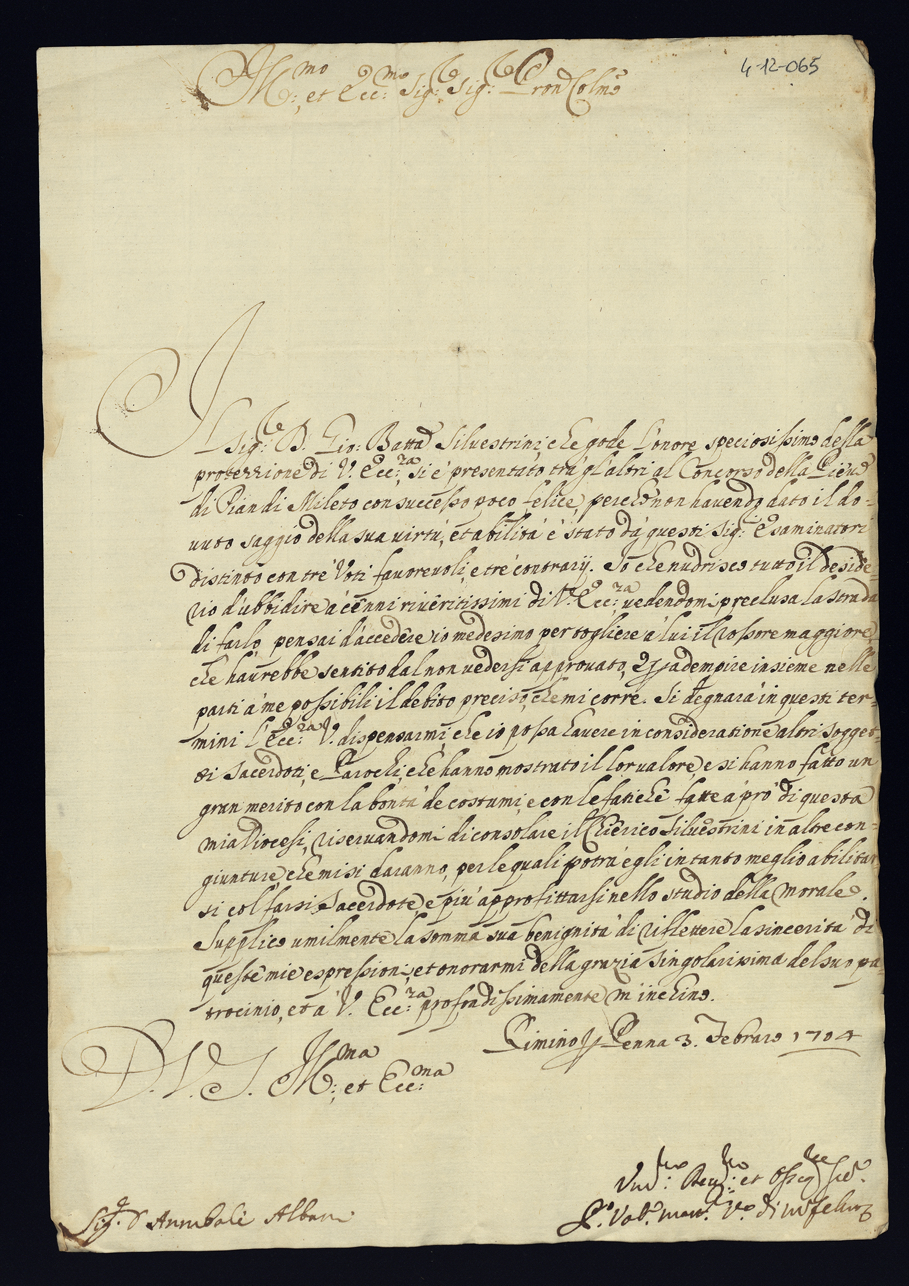 4-12-065
Ill:mo et Ecc:mo Sig:r Sig:r Pron Colmo
Il Sig:r D. Gio: Batta Silvestrini, che gode l'onore speciosissimo della
protezzione di V. Ecc:za, si è presentato trà gl'altri al Concorso della Pieve
di Pian di Mileto con successo poco felice, perche non havendo dato il do-
vuto saggio della sua virtù, et abilità è stato dà questi Sig:ri Esaminatori
distinto con trè Voti favorevoli, e trè contrarij. Io che nudrisco tutto il deside-
rio d'ubbidire à cenni riveritissimi di V. Ecc:za vedendomi preclusa la strada
di farlo, pensai d'accedere io medesimo per togliere à lui il rossore maggiore,
che havrebbe sentito dal non vedersi approvato, e p adempire insieme nelle
parti à me possibili il debito preciso, che mi corre. Si degnarà in questi ter-
mini l'Ecc:za V. dispensarmi, che io possa havere in consideratione altri Sogget-
ti Sacerdoti, e Parochi, che hanno mostrato il lor valore, e si hanno fatto un
gran merito con la bontà de costumi e con le fatiche fatte à prò di questa
mia Diocesi, riservandomi di consolare il Chierico Silvestrini in altre con-
giunture che mi si daranno, per le quali potrà egli in tanto meglio abilitar
si col farsi Sacerdote e più approfittarsi nello studio della morale.
Supplico umilmente la somma sua benignità di riflettere la sincerità di
queste mie espressioni, et onorarmi della grazia singolarissima del suo pa-
trocinio, et à V. Ecc:za profondissimamente m'inchino.
Rimino p Penna 3. Febraro 1704
D. V. S. Ill:ma et Ecc:ma
Sig.r D Annibale Albani
Um:o Dev:o et Osseq
di Mofeltro